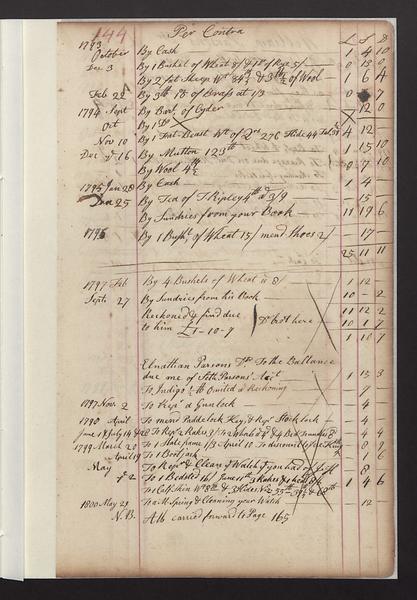 144 Per Contra
1793 L S D
October By Cash 1 4 10
Dec 3 By 1 Bushel of Wheat 8/ & 1 of Rye 5/ 0 13 0
By 2 fat Sheep Wt 84 & 3 of Wool 1 6 4
Feb 22 By of Brass at 1/3 0 7
1794 Sept By Barl of Cyder 12 0
Oct By 1 Do
Nov 10 By 1 Fat Beast Wt of Qrs 276 Hide 44 4 12
Dec 16 By Mutton 123 lb 1 15 10
By Wool 7 10
1795 Jan 28 By Cash 1 4
25 By Tea of T Ripley 4 lb a 3/9 15
By Sundries from your Book 11 19 6
1796 By 1 Bushl of Wheat 15/ mend Shoes 2/ 17
25 11 11
1797 Feb By 4 Bushels of Wheat a 8/ 1 12
Sept 27 By Sundries from his Book 10 2
Reckoned & find due 11 12 2
to him £1-10-7 Dr bot here 10 1 7
1 10 7
Elnathan Parsons Dr To the Ballance
due me of Seth Parsons' Act 1 13 3
To Indigo omited a Reckoning 7
1797 Nov. 2 To Repr a Gunlock 4
1798 April To mend Paddelock Key, & Repr Stock lock 4
4
1799 March 28 To 1 Stole frame 1/3 April 10 8 9
April 19 To 1 Bootjack 1 6
May To Repr & Clean a Watch if you had of 8
2 To 1 Bedsted 16/ June 11th 3 Rakes 1 4 6
To 1 Calf Skin Wt 8 lb & 3 Hides
1800 May 29 To a M. Spring & Cleaning your Watch 12
N.B. Alb carried forward to Page 165